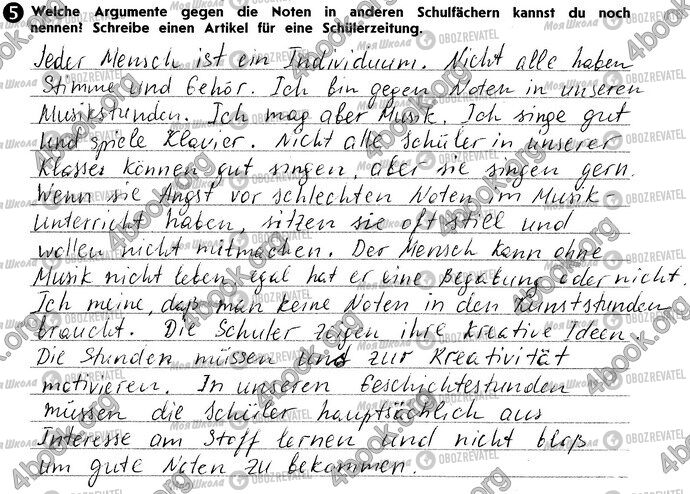 5 Welche Argumente gegen die Noten in anderen Schulfächern kannst du noch
nennen? Schreibe einen Artikel für eine Schülerzeitung.
Jeder Mensch ist ein Individuum. Nicht alle haben
Stimme und Gehör. Ich bin gegen Noten in unseren
Musikstunden. Ich mag aber Musik. Ich singe gut
und spiele Klavier. Nicht alle Schüler in unserer
Klasse können gut singen, aber sie singen gern.
Wenn sie Angst vor schlechten Noten im Musik
unterricht haben, sitzen sie oft still und
wollen nicht mitmachen. Der Mensch kann ohne
Musik nicht leben, egal hat er eine Begabung oder nicht.
Ich meine, daß man keine Noten in den Kunststunden
braucht. Die Schüler zeigen ihre kreative Ideen.
Die Stunden müssen uns zur Kreativität
motivieren. In unseren Geschichtestunden
müssen die Schüler hauptsächlich aus
Interesse am Stoff lernen und nicht bloß
um gute Noten zu bekommen.